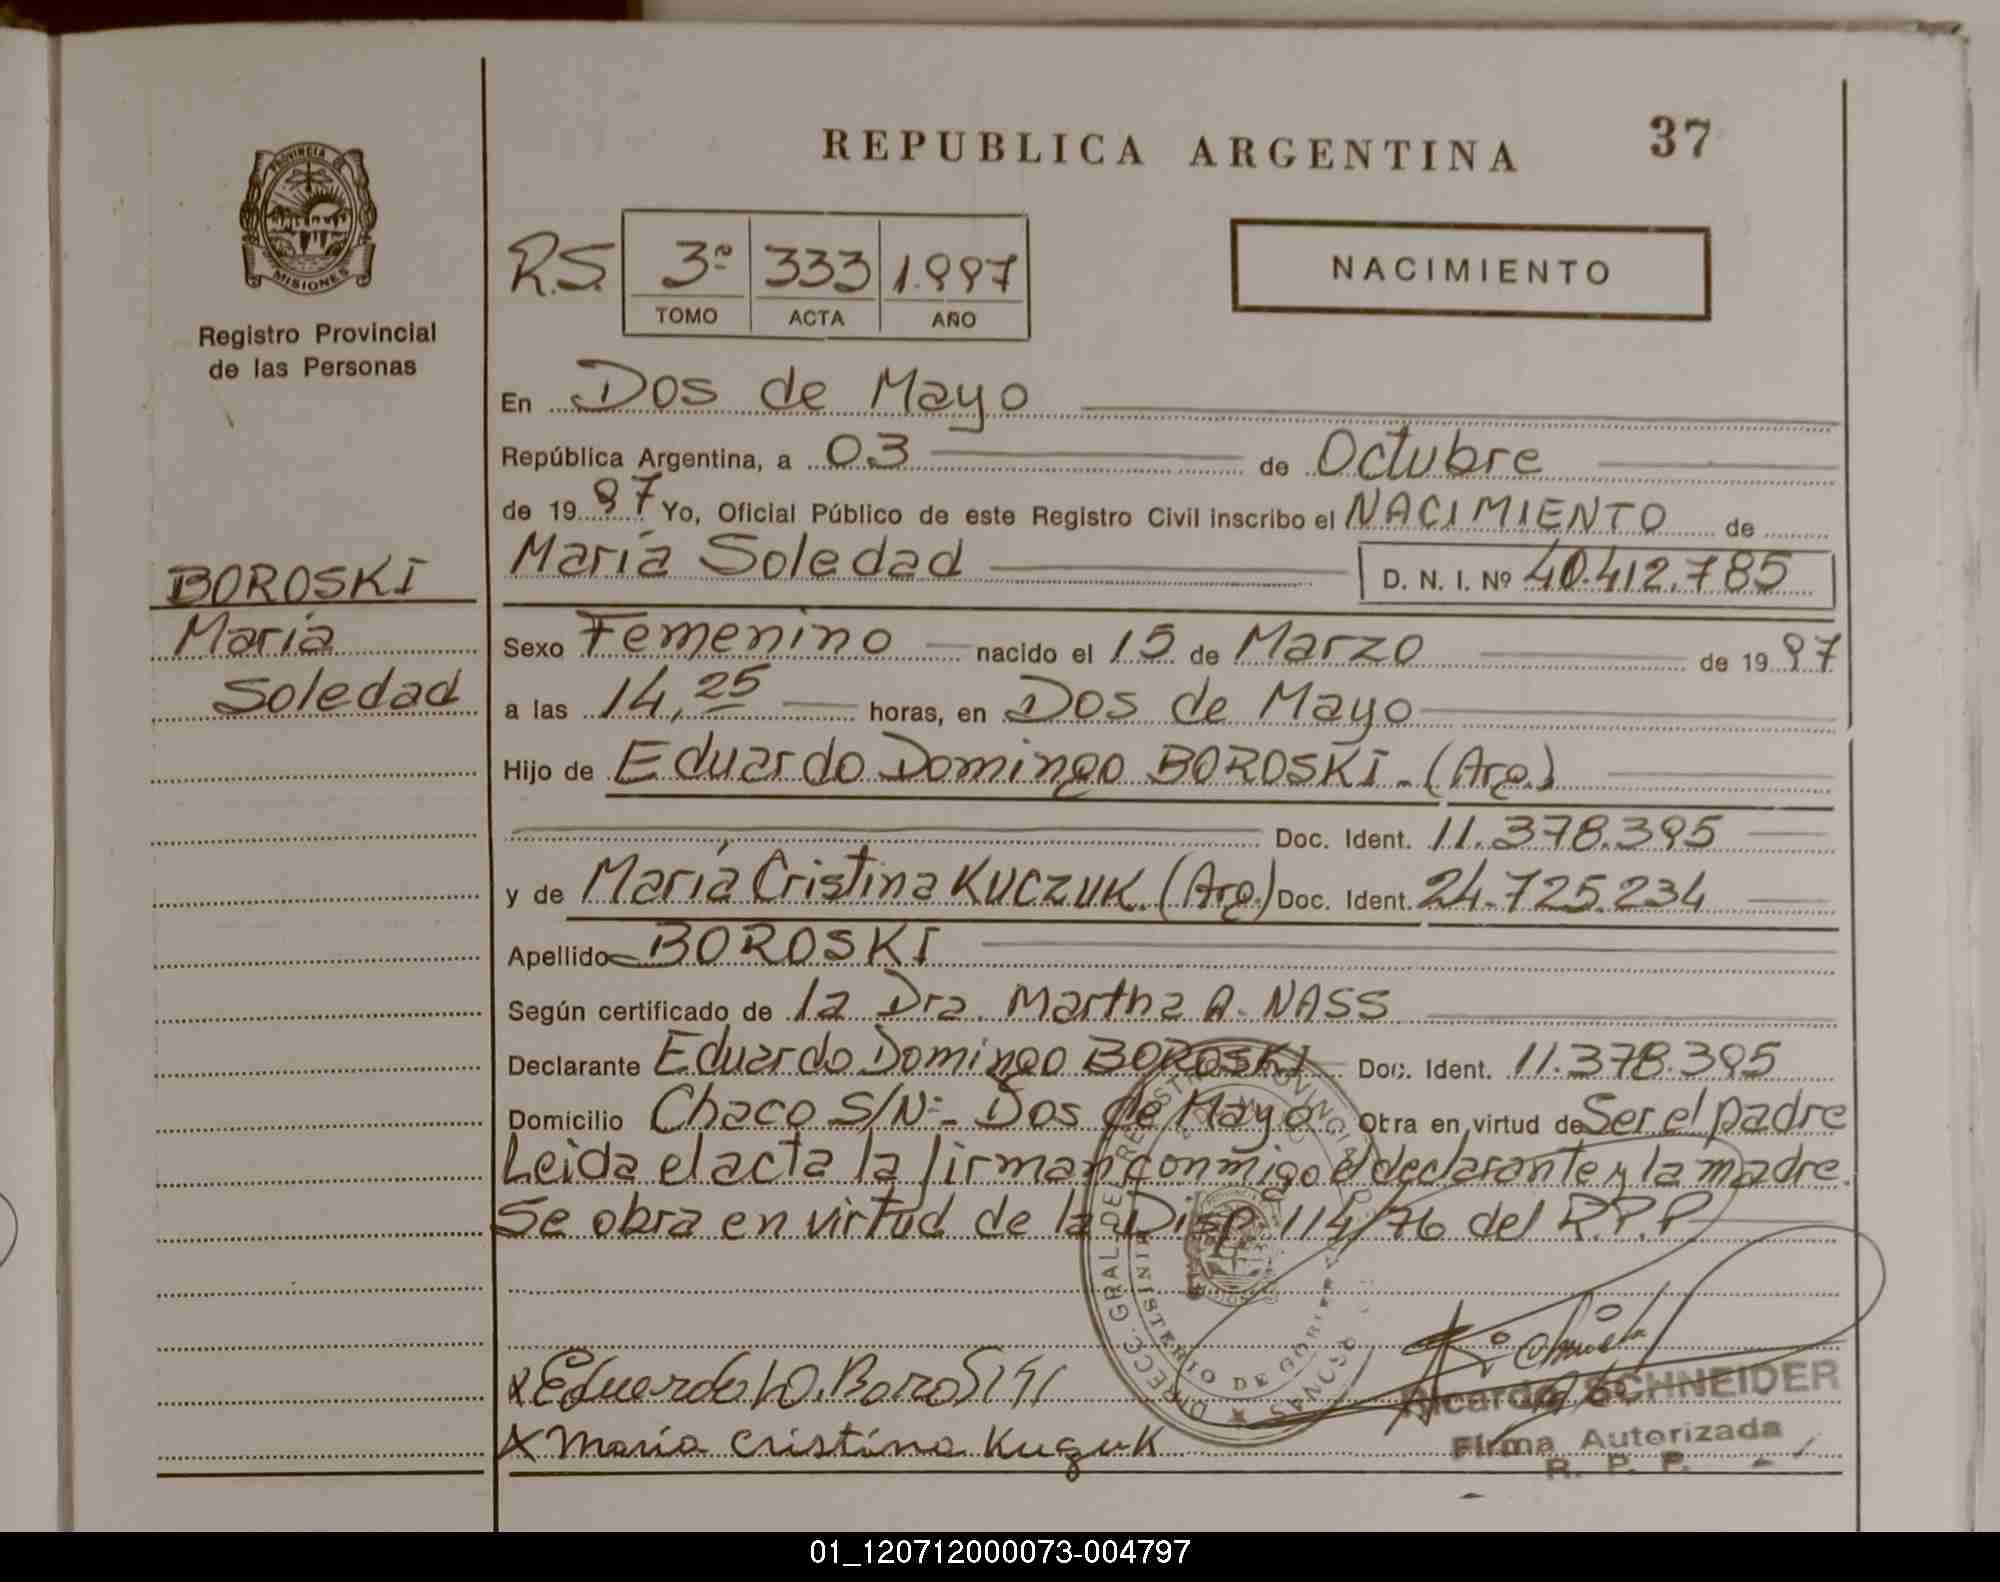 REPUBLICA ARGENTINA
37
PROVINCIA DE
MISIONES
Registro Provincial
de las Personas
R.S.
3º 333 1.997
TOMO ACTA AÑO
NACIMIENTO
En Dos de Mayo
República Argentina, a 03 de Octubre
de 1997 Yo, Oficial Público de este Registro Civil inscribo el NACIMIENTO de
María Soledad D. N. I. Nº 40.412.785
BOROSKI
María
Soledad
Sexo Femenino nacido el 15 de Marzo de 1997
a las 14,25 horas, en Dos de Mayo
Hijo de Eduardo Domingo BOROSKI - (Arg.)
Doc. Ident. 11.378.395
y de María Cristina KUCZUK. (Arg.) Doc. Ident. 24.725.234
Apellido BOROSKI
Según certificado de la Dra. Martha A. NASS
Declarante Eduardo Domingo BOROSKI Doc. Ident. 11.378.395
Domicilio Chaco S/Nº - Dos de Mayo Obra en virtud de Ser el padre
Leida el acta la firman conmigo el declarante y la madre.
Se obra en virtud de la Disp. 114/76 del R.P.P.
DIRECC. GRAL. DEL REGISTRO PROVINCIAL
MINISTERIO DE GOBIERNO
x Eduardo D. Boroski
x Maria Cristina Kuzuk
Ricardo SCHNEIDER
Firma Autorizada
R. P. P.
01_120712000073-004797